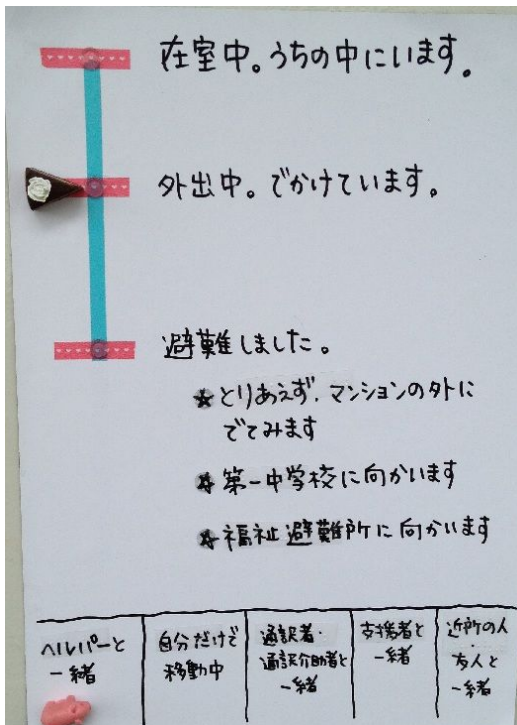 在室中。うちの中にいます。
外出中。でかけています。
避難しました。
★とりあえず、マンションの外に
でてみます
第一中学校に向かいます
福祉避難所に向かいます
ヘルパーと
一緒
自分だけで
移動中
通訳者・
通訳介助者と
一緒
支援者と
一緒
近所の人
・
友人と
一緒